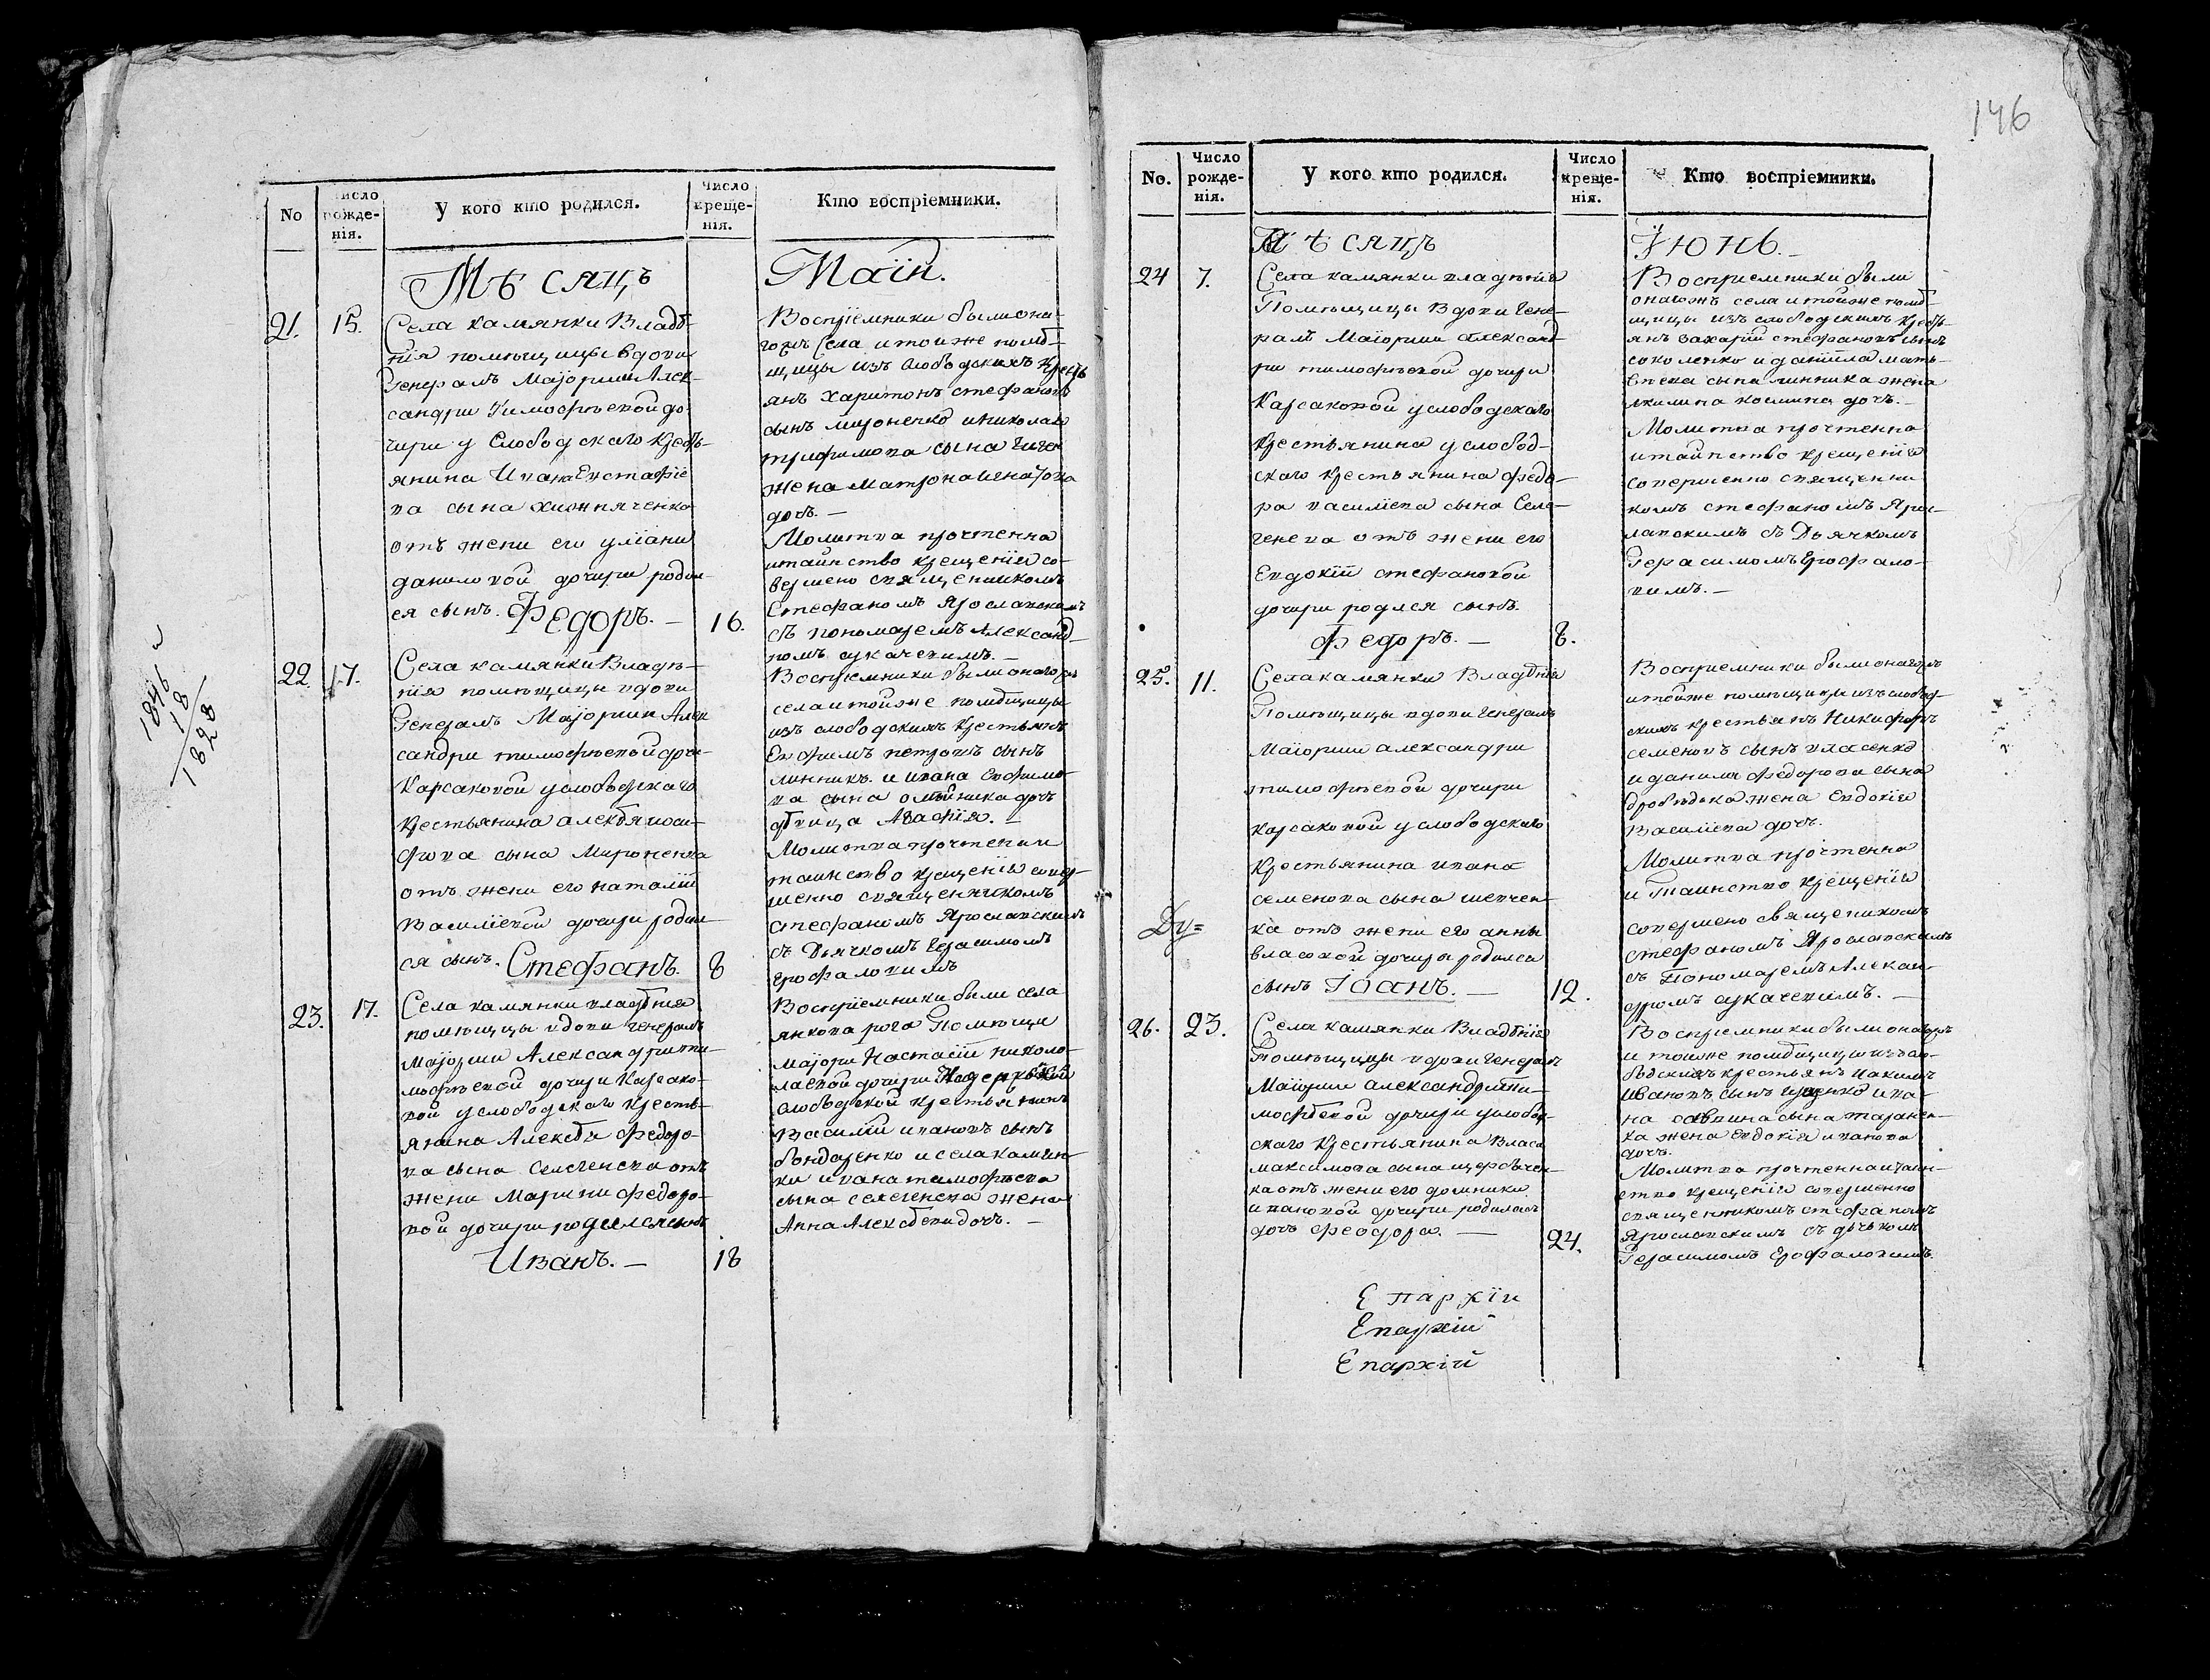 146
No
Число рожде-нія.
У кого кто родился.
Число креще-нія.
Кто воспріемники.
Мѣсяцъ
Маій.
21.
15.
Села камянки Владѣ-
нія помѣщицы вдови
Генералъ Маіорши Алек-
сандри Тимофѣевой до-
чери у Слободского крестъ-
янина Ивана Евстафіе
ва сына
отъ жени его уліани
даниловой дочери родил-
ся сынъ. Федоръ. —
16.
Воспріемники были она-
гожъ Села и тоижъ помѣ-
щицы изъ слободскихъ кресть
янъ Харитонъ стефановъ
сынъ мироненко и николая
трифимова сына
жена Матрона
дочь. —
Молитва прочтенна
и таинство крещенія со-
вершено священникомъ
Стефаномъ Ярославскимъ
съ пономаремъ Александ-
ромъ сукачевимъ. —
22.
17.
Села камянки Владѣ-
нія помѣщицы вдови
Генералъ Маіорши Алек
сандри тимофѣевой доче-
Карсаковой у слободскаго
крестьянина алексѣя иоси-
фова сына Мироненка
отъ жени его наталіи
василіевой дочери родил-
ся сынъ. Стефанъ.
8
Воспріемники были онагожъ
села и тойже помѣщицы
изъ слободскихъ крестьянъ
Евфимъ петровъ сынъ
линникъ. и ивана Евфимо-
ва сына олѣйника дочь
дѣвица Агафія. —
Молитва прочтенна и
таинство крещенія совер-
шенно священникомъ
стефаномъ Ярославскимъ
съ Дьячкомъ Герасимомъ
Ерофаловимъ
23.
17.
Села камянки владѣнія
помѣщицы вдови генералъ
маіорши Александри ти-
мофѣевой дочери Карсако-
вой у слободскаго кресть-
янина Алексѣя Федоро-
ва сына Селегенева отъ
жени Марини федоро-
вой дочери родился синъ
Иванъ. —
18
Воспріемники были села
янкова рога Помѣщи
маіори Настасіи николо-
лаевой дочери
слободской крестьянинъ
Василій ивановъ сынъ
бондаренко и села камян-
ки ивана тимофѣева
сына селегенева жена
Анна Алексѣева дочь. —
1846
18
1828
No.
Число рожде-нія.
У кого кто родился.
Число креще-нія.
Кто воспріемники.
Мѣсяцъ
Іюнь. —
24
7.
Села камянки владѣнія
Помѣщицы Вдови Гене-
ралъ Маіорши александ-
ри тимофѣевой дочери
Карсаковой у слободскаго
крестьянина у слобод-
скаго крестьянина федо-
ра василіева сына Селе-
генева отъ жени его
Евдокіи стефановой
дочери родлся сынъ.
Федоръ. —
8.
Воспріемники были
онагожъ села и тойже помѣ-
щицы изъ слободскихъ кресть-
янъ захарій стефановъ сынъ
соколенко и данила мать-
веева сына линника жена
акилина космина дочь. —
Молитва прочтенна
и таинство крещенія
совершенно священни
комъ стефаномъ Ярос-
лавскимъ съ Дьячкомъ
Герасимомъ Ерофало-
вимъ. —
25.
11.
Села камянки Владѣнія
Помѣщицы вдови Генералъ
Маіорши александри
тимофѣевой дочери
карсаковой у слободскаго
крестьянина ивана
семенова сына шевчен-
Ду=
ка отъ жени его анны
власовой дочери родился
сынъ Іоанъ. —
12.
Воспріемники были онагожъ
и тойже помѣщицы изъ слобод-
скихъ крестьянъ Никифоръ
семеновъ сынъ власенко
и данила федорова сына
жена Евдокія
Василіева дочь.
Молитва прочтенна
и Таинство крещенія
совершено священикомъ
стефаномъ Ярославскимъ
съ Пономаремъ Алексан-
дромъ сукачевимъ. —
26.
23.
Села камянки Владѣнія
Помѣщицы вдови Генералъ
Маіорши александри ти-
мофѣевой дочери у слобод-
скаго крестьянина Власа
максимова сына
ка отъ жени его домники
ивановой дочери родилась
дочь феодора. —
24.
Воспріемники были онагожъ
и тойже помѣщицы изъ сло-
бодскихъ крестьянъ Иакимъ
ивановъ сынъ и ива-
на саввина сына таранен-
ка жена Евдокія иванова
дочь.
Молитва прочтенна и таин-
ство крещенія совершенно
священникомъ стефаномъ
Ярославскимъ съ дячкомъ
Герасимомъ Ерофаловимъ.
Епархіи
Епархіи
Епархіи